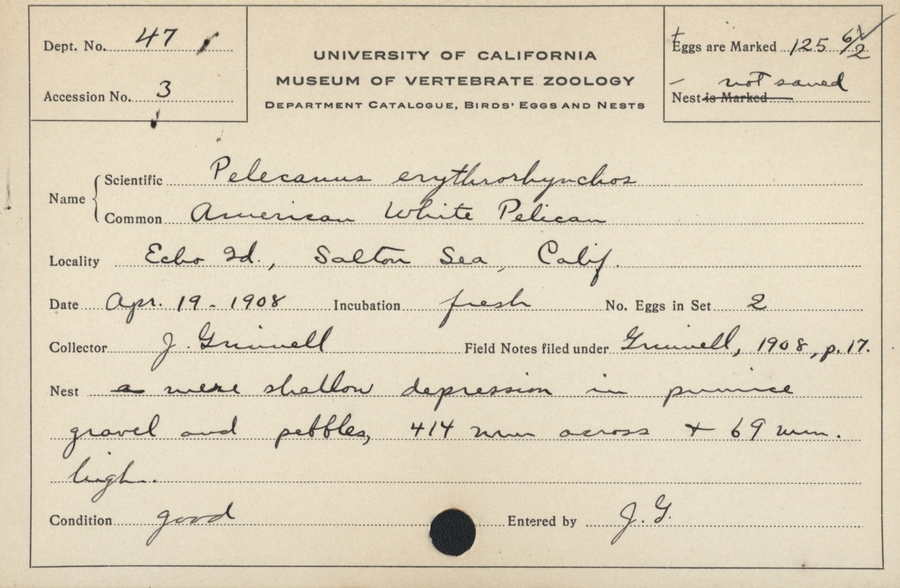 Dept. No. 47
Accession No. 3
UNIVERSITY OF CALIFORNIA
MUSEUM OF VERTEBRATE ZOOLOGY
DEPARTMENT CATALOGUE, BIRDS' EGGS AND NESTS
Eggs are Marked 125 6/2
not saved
Nest is Marked
Name
Scientific Pelecanus erythrorhynchos
Common American White Pelican
Locality Echo Id., Salton Sea, Calif.
Date Apr. 19 - 1908 Incubation fresh No. Eggs in Set 2
Collector J. Grinnell Field Notes filed under Grinnell, 1908, p. 17.
Nest a mere shallow depression in pumice
gravel and pebbles, 414 mm across + 69 mm.
high.
Condition good Entered by J. G.